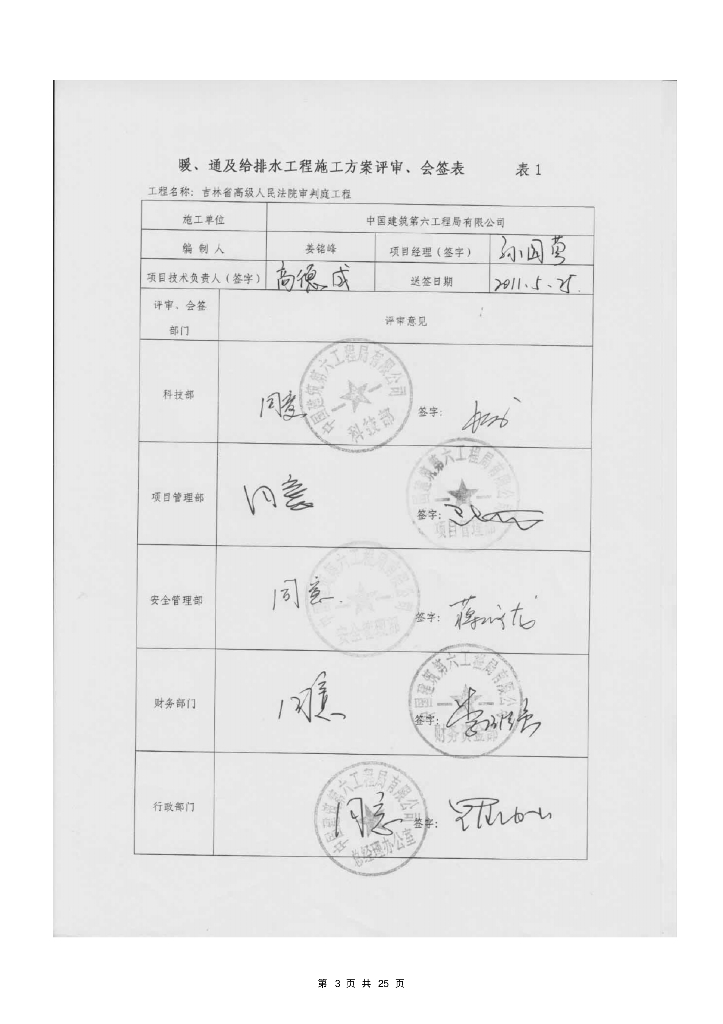 暖、通及给排水工程施工方案评审、会签表 表1
工程名称：吉林省高级人民法院审判庭工程
施工单位 中国建筑第六工程局有限公司
编制人 姜铭峰 项目经理（签字）
项目技术负责人（签字） 高德成 送签日期 2011.5.25.
评审、会签
部门
评审意见
中国建筑第六工程局有限公司
科技部
科技部 同意 签字：
中国建筑第六工程局有限公司
项目管理部
项目管理部 同意 签字：
安全管理部 同意. 签字：
中国建筑第六工程局有限公司
财务部门 同意 签字：
中国建筑第六工程局有限公司
总经理办公室
行政部门 同意 签字：
第 3 页 共 25 页